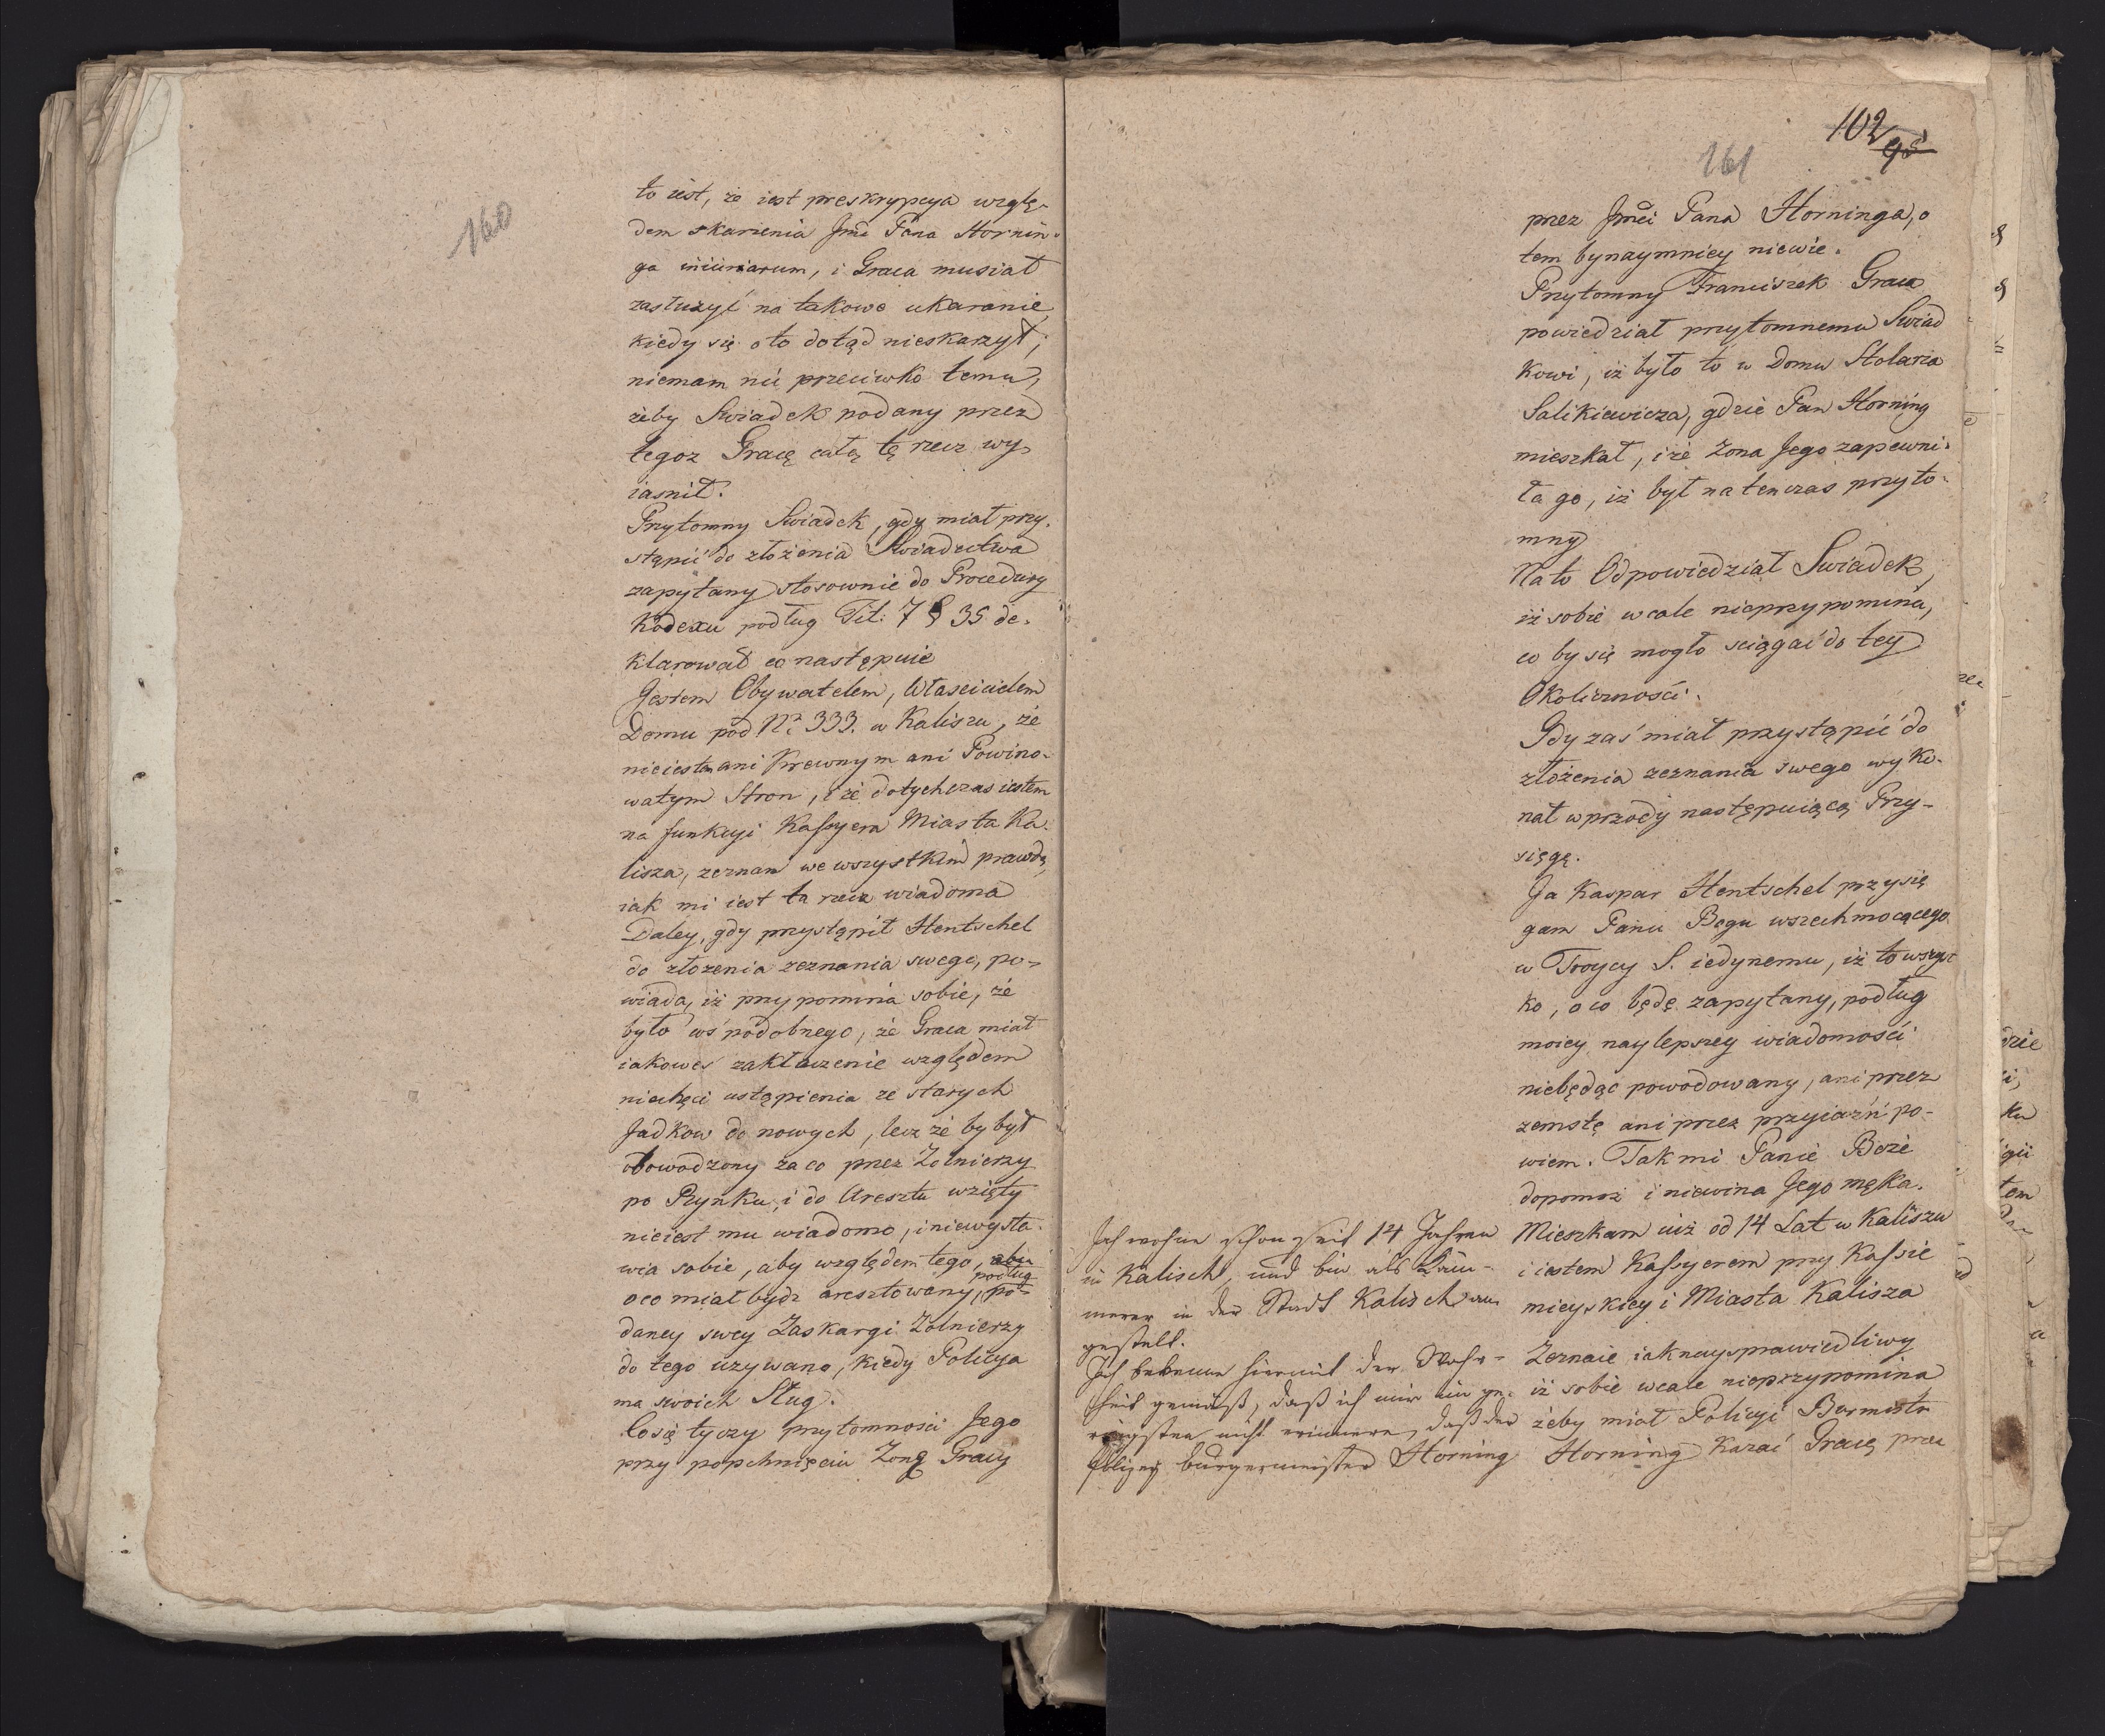 160
to iest, że iest preskrypcya wzglę-
dem skarżenia Jmci Pana Hornin-
ga iniuriarum, i Graca musiał
zasłużyć na takowe ukaranie,
kiedy się o to dotąd nieskarzył;
niemam nic przeciwko temu,
żeby Swiadek podany przez
tegoz Gracę całą tę rzecz wy-
iasnił.
Przytomny Swiadek, gdy miał przy-
stąpić do złożenia Swiadectwa
zapytany stosownie do Procedury
Kodexu podług Tit: 7 § 35 de-
klarował co następuie
Jestem Obywatelem, Włascicielem
Domu pod Nr. 333. w Kaliszu, że
nieiestem ani Krewnym ani Powino-
watym Stron, i że dotychczas iestem
na funkcyi Kassyera Miasta Ka-
lisza, zeznam we wszystkim prawdę,
iak mi iest ta rzecz wiadoma
Daley, gdy przystąpił Hentschel
do złozenia zeznania swego, po-
wiada, iż przypomina sobie, że
było cos podobnego, że Graca miał
iakowes zakłuczenie względem
niechęci ustąpienia ze starych
Jadkow do nowych, lecz że by był
obowodzony za co przez Zołnierzy
po Rynku, i do Aresztu wzięty
nieiest mu wiadomo, i niewysta-
wia sobie, aby względem tego, aby
podług
oco miał bydz aresztowany, po-
daney swey Zaskargi Zołnierzy
do tego uzywano, kiedy Policya
ma swoich Sług.
Co się tyczy przytomnosci Jego
przy popchnięciu Zony Gracy
102
95
161
przez Jmci Pana Horninga, o
tem bynaymniey niewie.
Przytomny Franciszek Graca
powiedział przytomnemu Swiad
kowi, iż było to w Domu Stolarza
Salikiewicza, gdzie Pan Horning
mieszkał, i że Zona Jego zapewni-
ła go, iż był natenczas przyto-
mny
Na to Odpowiedział Swiadek,
iż sobie wcale nieprzypomina,
co by się mogło sciągać do tey
Okoliczności.
Gdy zaś miał przystąpić do
złożenia zeznania swego wyko-
nał wprzody następuiącą Przy-
sięgę.
Ja Kaspar Hentschel przysię
gam Panu Bogu wszechmocącego
w Troycy S. iedynemu, iż to wszyst
ko, o co będę zapytany, podług
moiey naylepszey wiadomości
niebędąc powodowany, ani przez
zemstę ani przez przyiaźń po-
wiem. Tak mi Panie Boże
dopomoż i niewina Jego męka.
Mieszkam iuż od 14 Lat w Kaliszu
i iestem Kassyerem przy Kassie
mieyskiey i Miasta Kalisza
Zeznaie iak naysprawiedliwy
iż sobie wcale nieprzypomina
żeby miał Policyi Burmistr
Horning Kazać Gracę prze
Ich wohne schon seit 14 Jahren
in Kalisch, und bin als Käm-
merer in der Stadt Kalisch an
gestelt.
Ich bekenne hiermit der Wahr-
heit gemäß, daß ich mir im ge-
ringsten nicht erinnere, daß der
Polizey burgermeister Horning